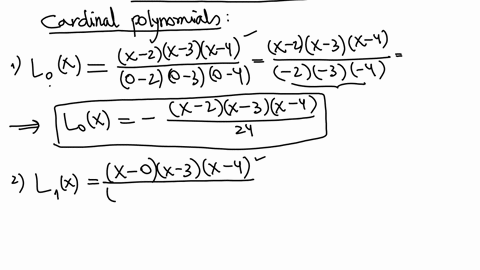 Cardinal polynomials:
1) L₀(x) = (x-2)(x-3)(x-4) / (0-2)(0-3)(0-4) = (x-2)(x-3)(x-4) / (-2)(-3)(-4) =
⇒ L₀(x) = - (x-2)(x-3)(x-4) / 24
2) L₁(x) = (x-0)(x-3)(x-4) / (